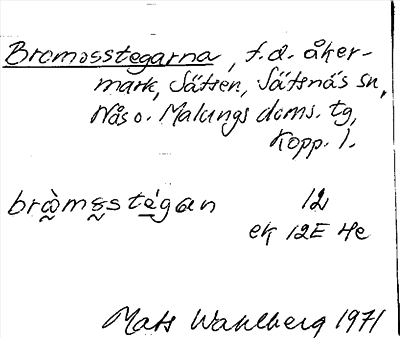 Bromosstegarna, f.d. åker-
mark, Sätsen, Sätsnäs sn,
Nås o. Malungs doms. tg,
Kopp. l.
12
ek 12E 4e
Mats Wahlberg 1971